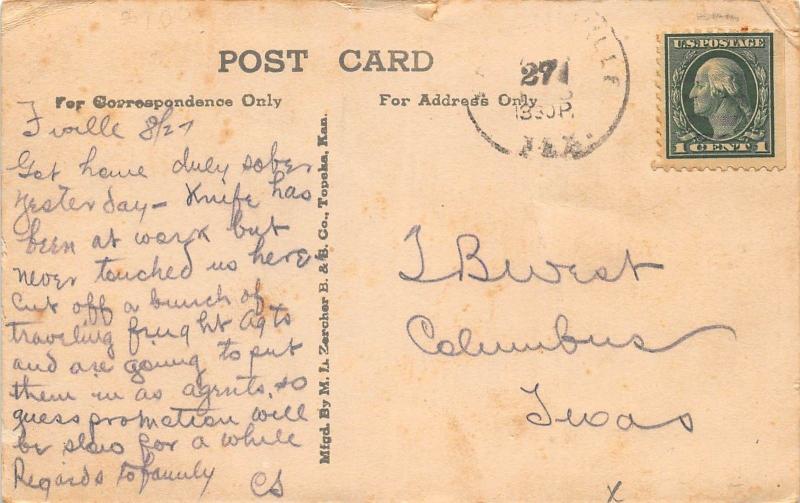 POST CARD
For Correspondence Only
For Address Only
U.S. POSTAGE
1 CENT 1
27
830P
TEX.
F'ville 8/27
Got home duly sober
yesterday - Knife has
been at work but
never touched us here
Cut off a bunch of
traveling frught Agts
and are going to put
them in as agents, so
guess promotion will
be slow for a while
Regards to family
CS
Mfgd. By M. L. Zercher B. & S. Co., Topeka, Kan.
I B West
Columbus
Texas
x